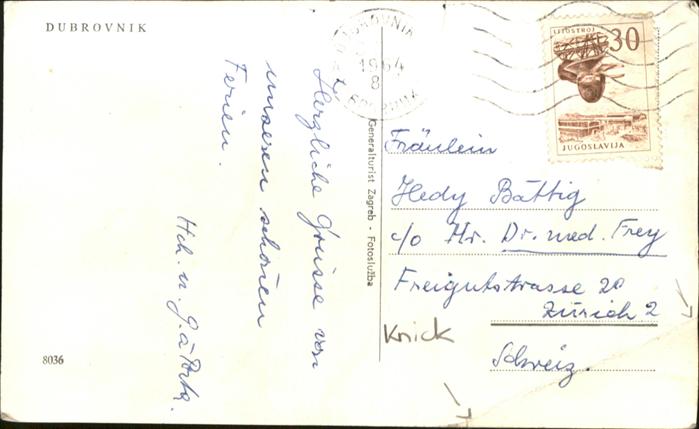 DUBROVNIK
Herzliche Grüsse von
unseren schönen
Ferien.
Hch. u. G. à Porta.
8036
Generalturist Zagreb - Fotoslužba
DUBROVNIK
LITOSTROJ
30
JUGOSLAVIJA
Fräulein
Hedy Bättig
c/o Hr. Dr. med. Frey
Freigutstrasse 20
Zürich 2
Schweiz.
Knick